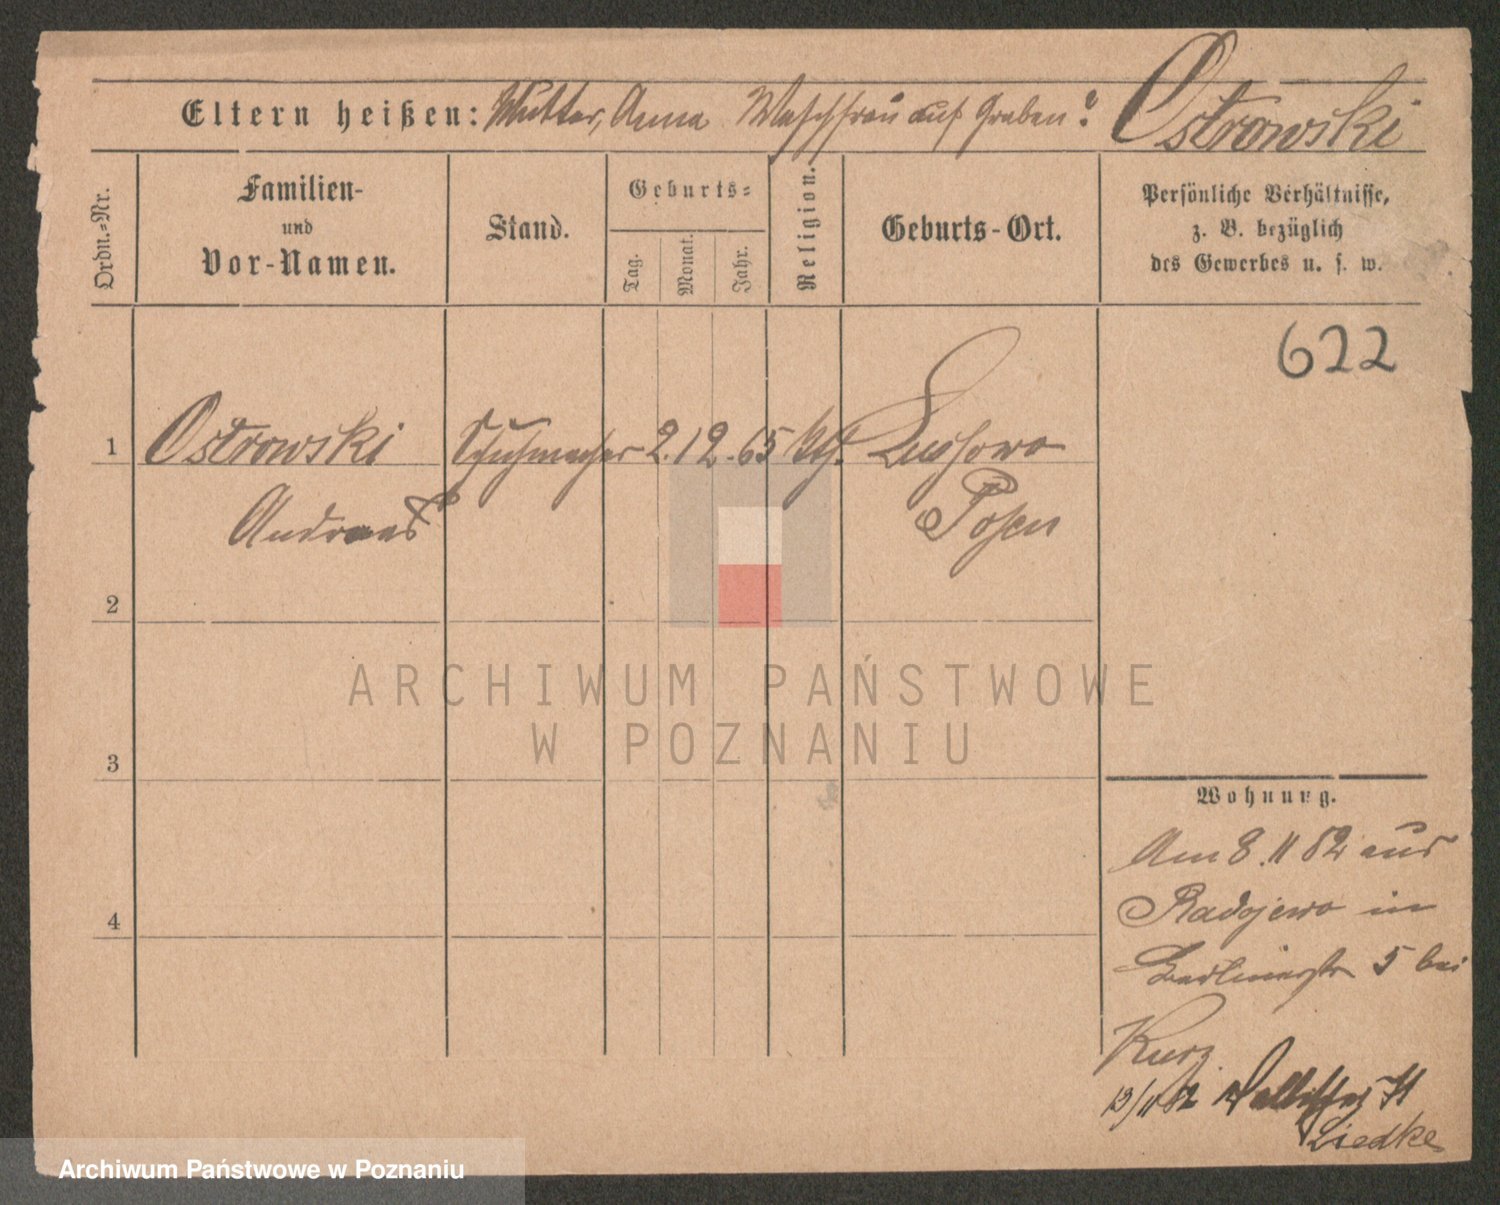 Eltern heißen: Mutter, Anna Waschfrau auf Graben 2. Ostrowski
Ordn.-Nr.
Familien-
und
Vor-Namen.
Stand.
Geburts-
Tag.
Monat.
Jahr.
Religion.
Geburts-Ort.
Persönliche Verhältnisse,
z. B. bezüglich
des Gewerbes u. s. w.
622
1 Ostrowski Schuhmacher 2. 12. 65 kth. Lussowo
Andreas Posen
2
3
4
Wohnung.
Am 8. 11 82 aus
Radojewo in
Berlinerstr 5 bei
Kurz.
13/11 82 Wallischei
Liedke
ARCHIWUM PAŃSTWOWE
W POZNANIU
Archiwum Państwowe w Poznaniu